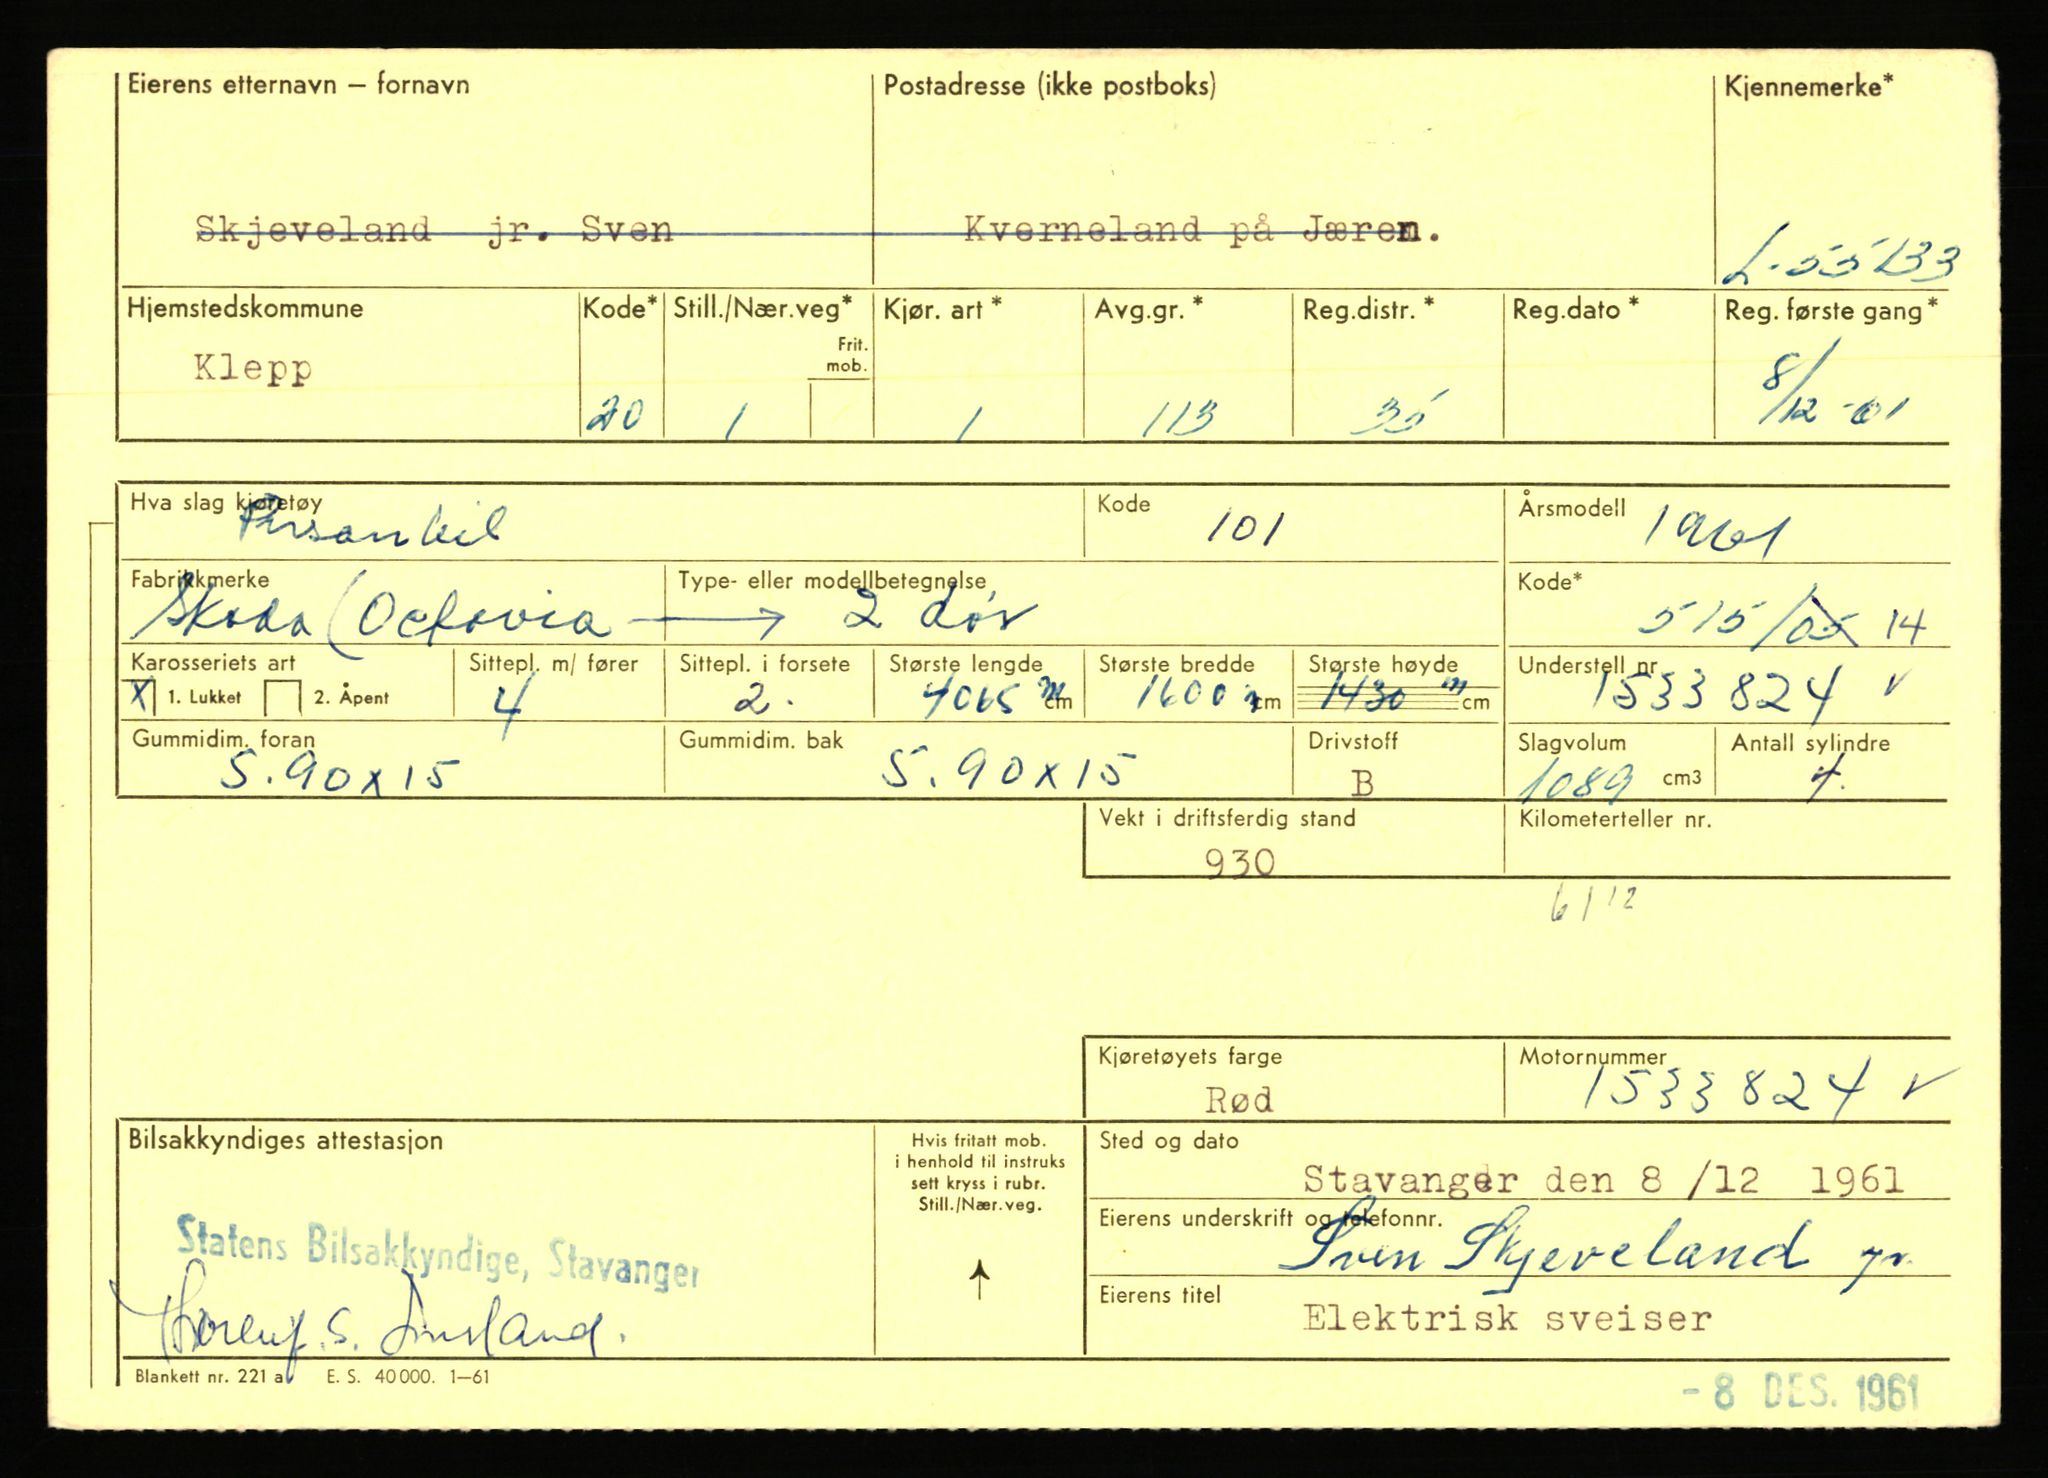 Eierens etternavn – fornavn Postadresse (ikke postboks) Kjennemerke*
Skjeveland jr. Sven Kverneland på Jæren.
L-55133
Hjemstedskommune Kode* Still./Nær.veg* Kjør. art* Avg.gr.* Reg.distr.* Reg.dato* Reg. første gang*
Frit. mob.
Klepp 20 1 1 113 35 8/12-61
Hva slag kjøretøy Kode Årsmodell
Personbil 101 1961
Fabrikkmerke Type- eller modellbetegnelse Kode*
Skoda (Octavia → 2 dør 515/05 14
Karosseriets art Sittepl. m/ fører Sittepl. i forsete Største lengde Største bredde Største høyde Understell nr.
X 1. Lukket 2. Åpent 4 2. 4065 m cm 1600 m cm 1430 m cm 1533824 v
Gummidim. foran Gummidim. bak Drivstoff Slagvolum Antall sylindre
5.90x15 5.90x15 B 1089 cm3 4.
Vekt i driftsferdig stand Kilometerteller nr.
930
6112
Kjøretøyets farge Motornummer
Rød 1533824 v
Bilsakkyndiges attestasjon
Hvis fritatt mob.
i henhold til instruks
sett kryss i rubr.
Still./Nær.veg.
↑
Sted og dato
Stavanger den 8 /12 1961
Eierens underskrift og telefonnr.
Sven Skjeveland jr.
Statens Bilsakkyndige, Stavanger
Eierens titel
Elektrisk sveiser
Blankett nr. 221 a E. S. 40000. 1–61
- 8 DES. 1961